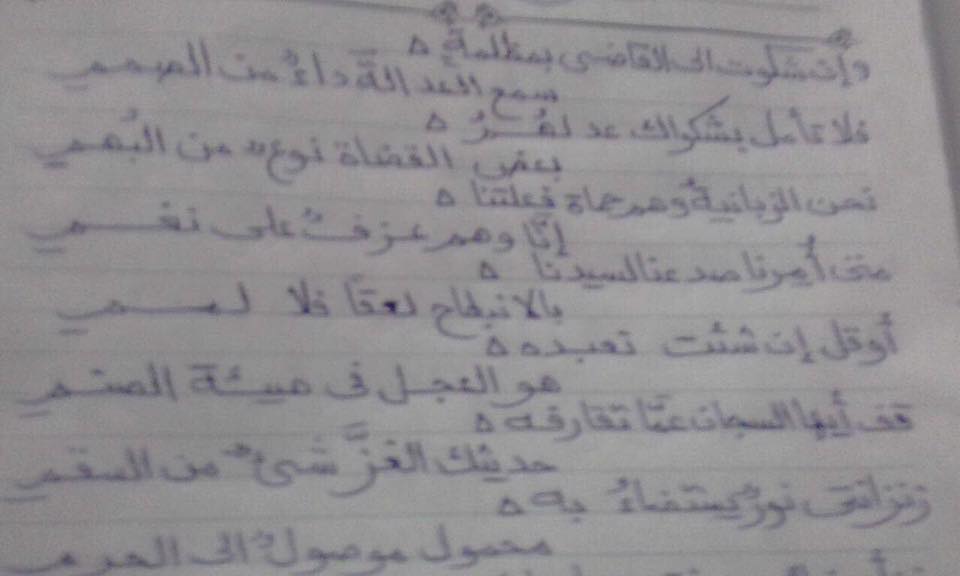 وإن شكوت إلى القاضى بمظلمةٍ ٥
سمع العدالة داءٌ من الصممي
فلا تأمل بشكواك عد لغُرُ ٥
بعض القضاة نوعٌ من البُهمي
نحن الزبانيةُ وهم حماة فعلتنا ٥
إنّا وهم عزفٌ على نغمي
متى أُمِرنا صدعنا لسيدنا ٥
بالانبطاح لعقاً فلا لمي
أو قل إن شئت تعبده ٥
هو العجل فى هيئة الصنمي
قف أيها السجان عمّا تقارفه ٥
حديثك الغزَّ شىءٌ من السقمي
زنزانتى نورٌ يستضاءُ به ٥
محمول موصولٌ الى الحرمي